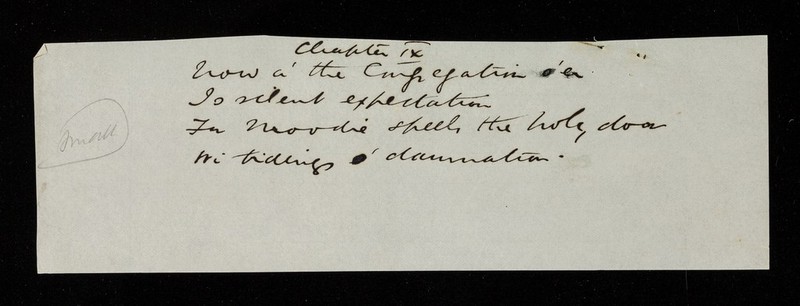 Chapter IX
Now a' the Congregation o'er
Is silent expectation
For Moodie speels the holy door
Wi tidings o' damnation.
small